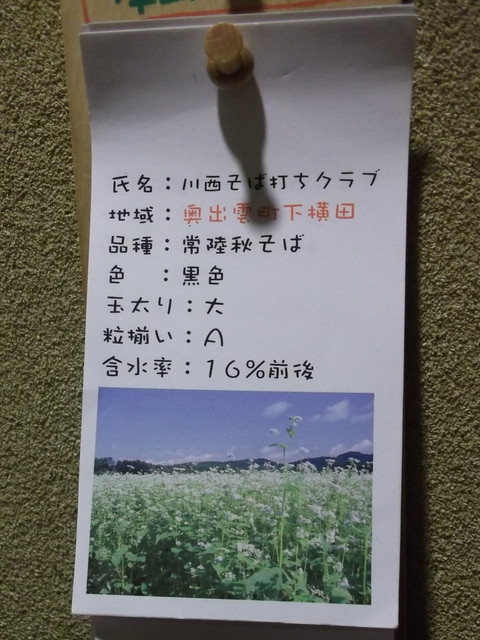 氏名：川西そば打ちクラブ
地域：奥出雲町下横田
品種：常陸秋そば
色　：黒色
玉太り：大
粒揃い：A
含水率：16%前後